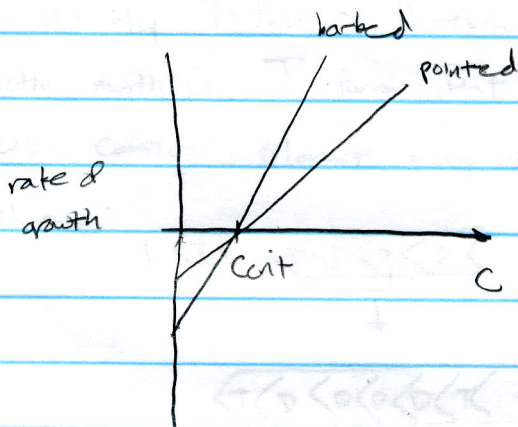 barbed
pointed
rate of
growth
Ccrit
C